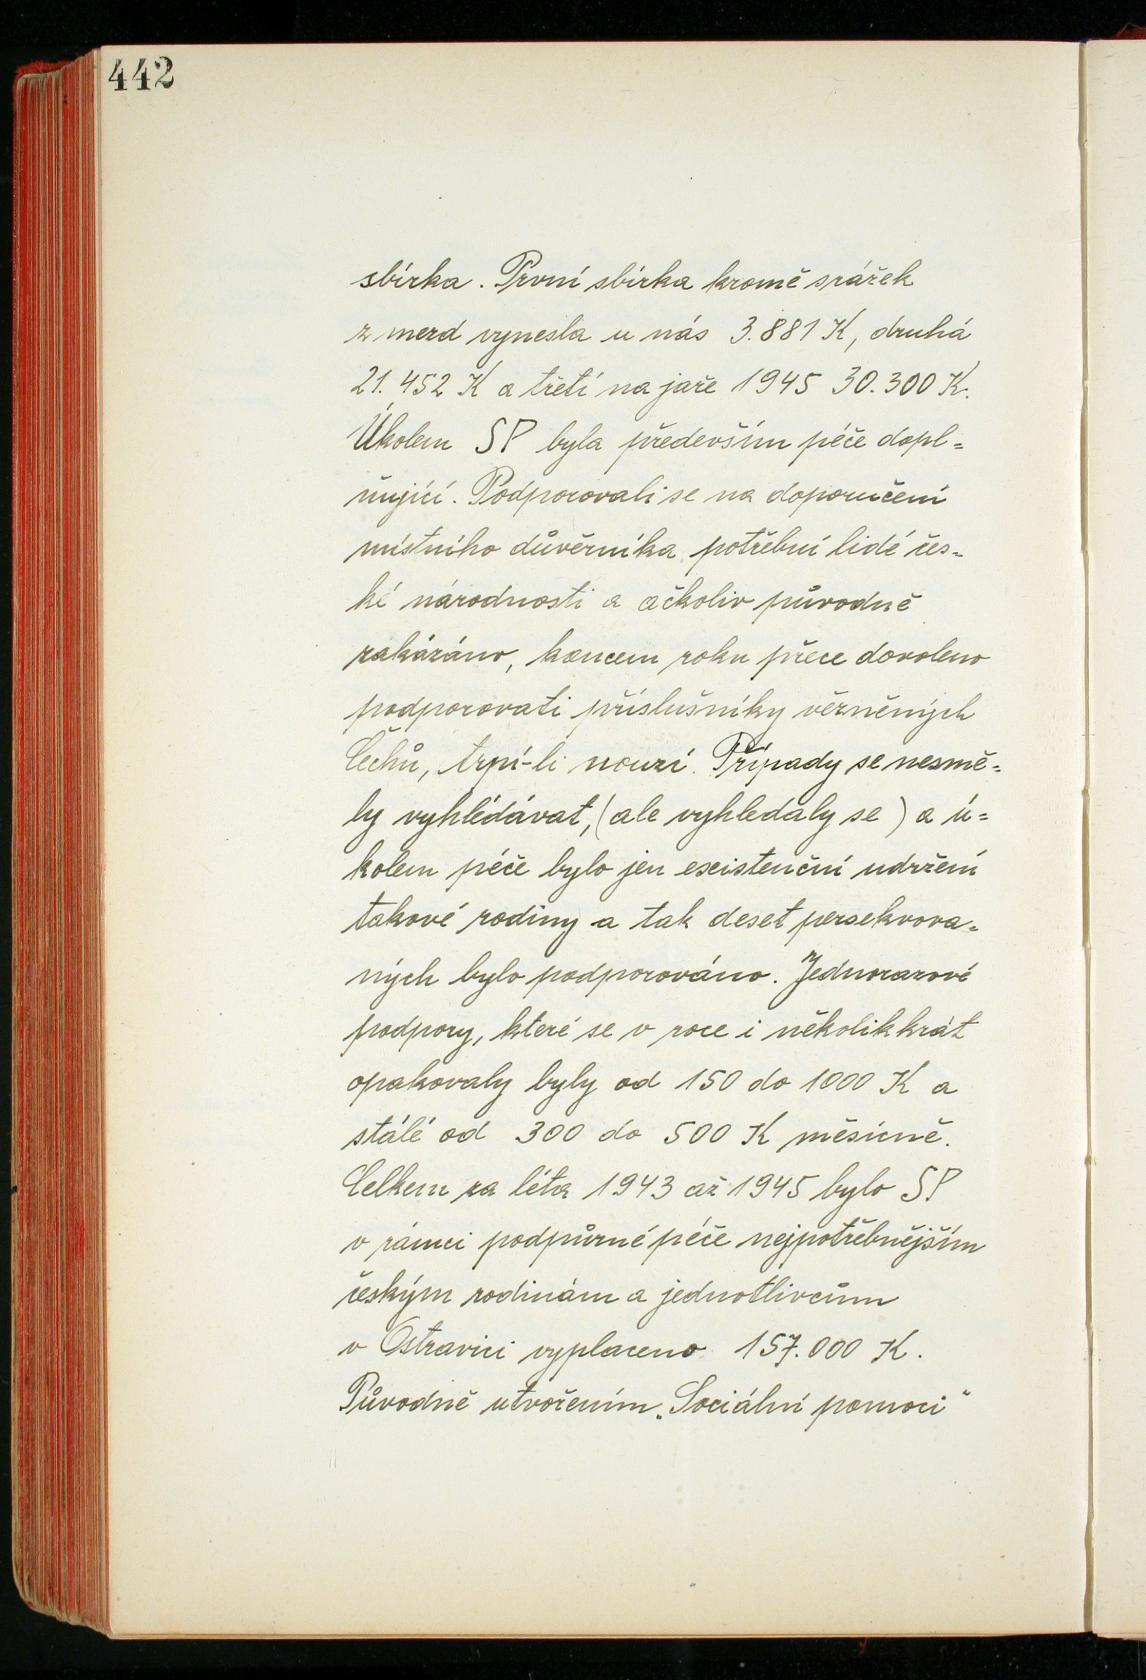 442
sbírka. První sbírka kromě srážek
z mezd vynesla u nás 3.881 K, druhá
21.452 K a třetí na jaře 1945 30.300 K.
Úkolem SP byla především péče dopl=
ňující. Podporovali se na doporučení
místního důvěrníka potřební lidé čes=
ké národnosti a ačkoliv původně
zakázáno, koncem roku přece dovoleno
podporovati příslušníky vězněných
Čechů, trpí-li nouzi. Případy se nesmě=
ly vyhlédávat, (ale vyhledaly se) a ú=
kolem péče bylo jen existenční udržení
takové rodiny a tak deset persekvova=
ných bylo podporováno. Jednorazové
podpory, které se v roce i několikkrát
opakovaly byly od 150 do 1000 K a
stálé od 300 do 500 K měsícně.
Celkem za léta 1943 až 1945 bylo SP
v rámci podpůrné péče nejpotřebnějším
českým rodinám a jednotlivcům
v Ostravici vyplaceno 157.000 K.
Původně utvořením „Sociální pomoci"